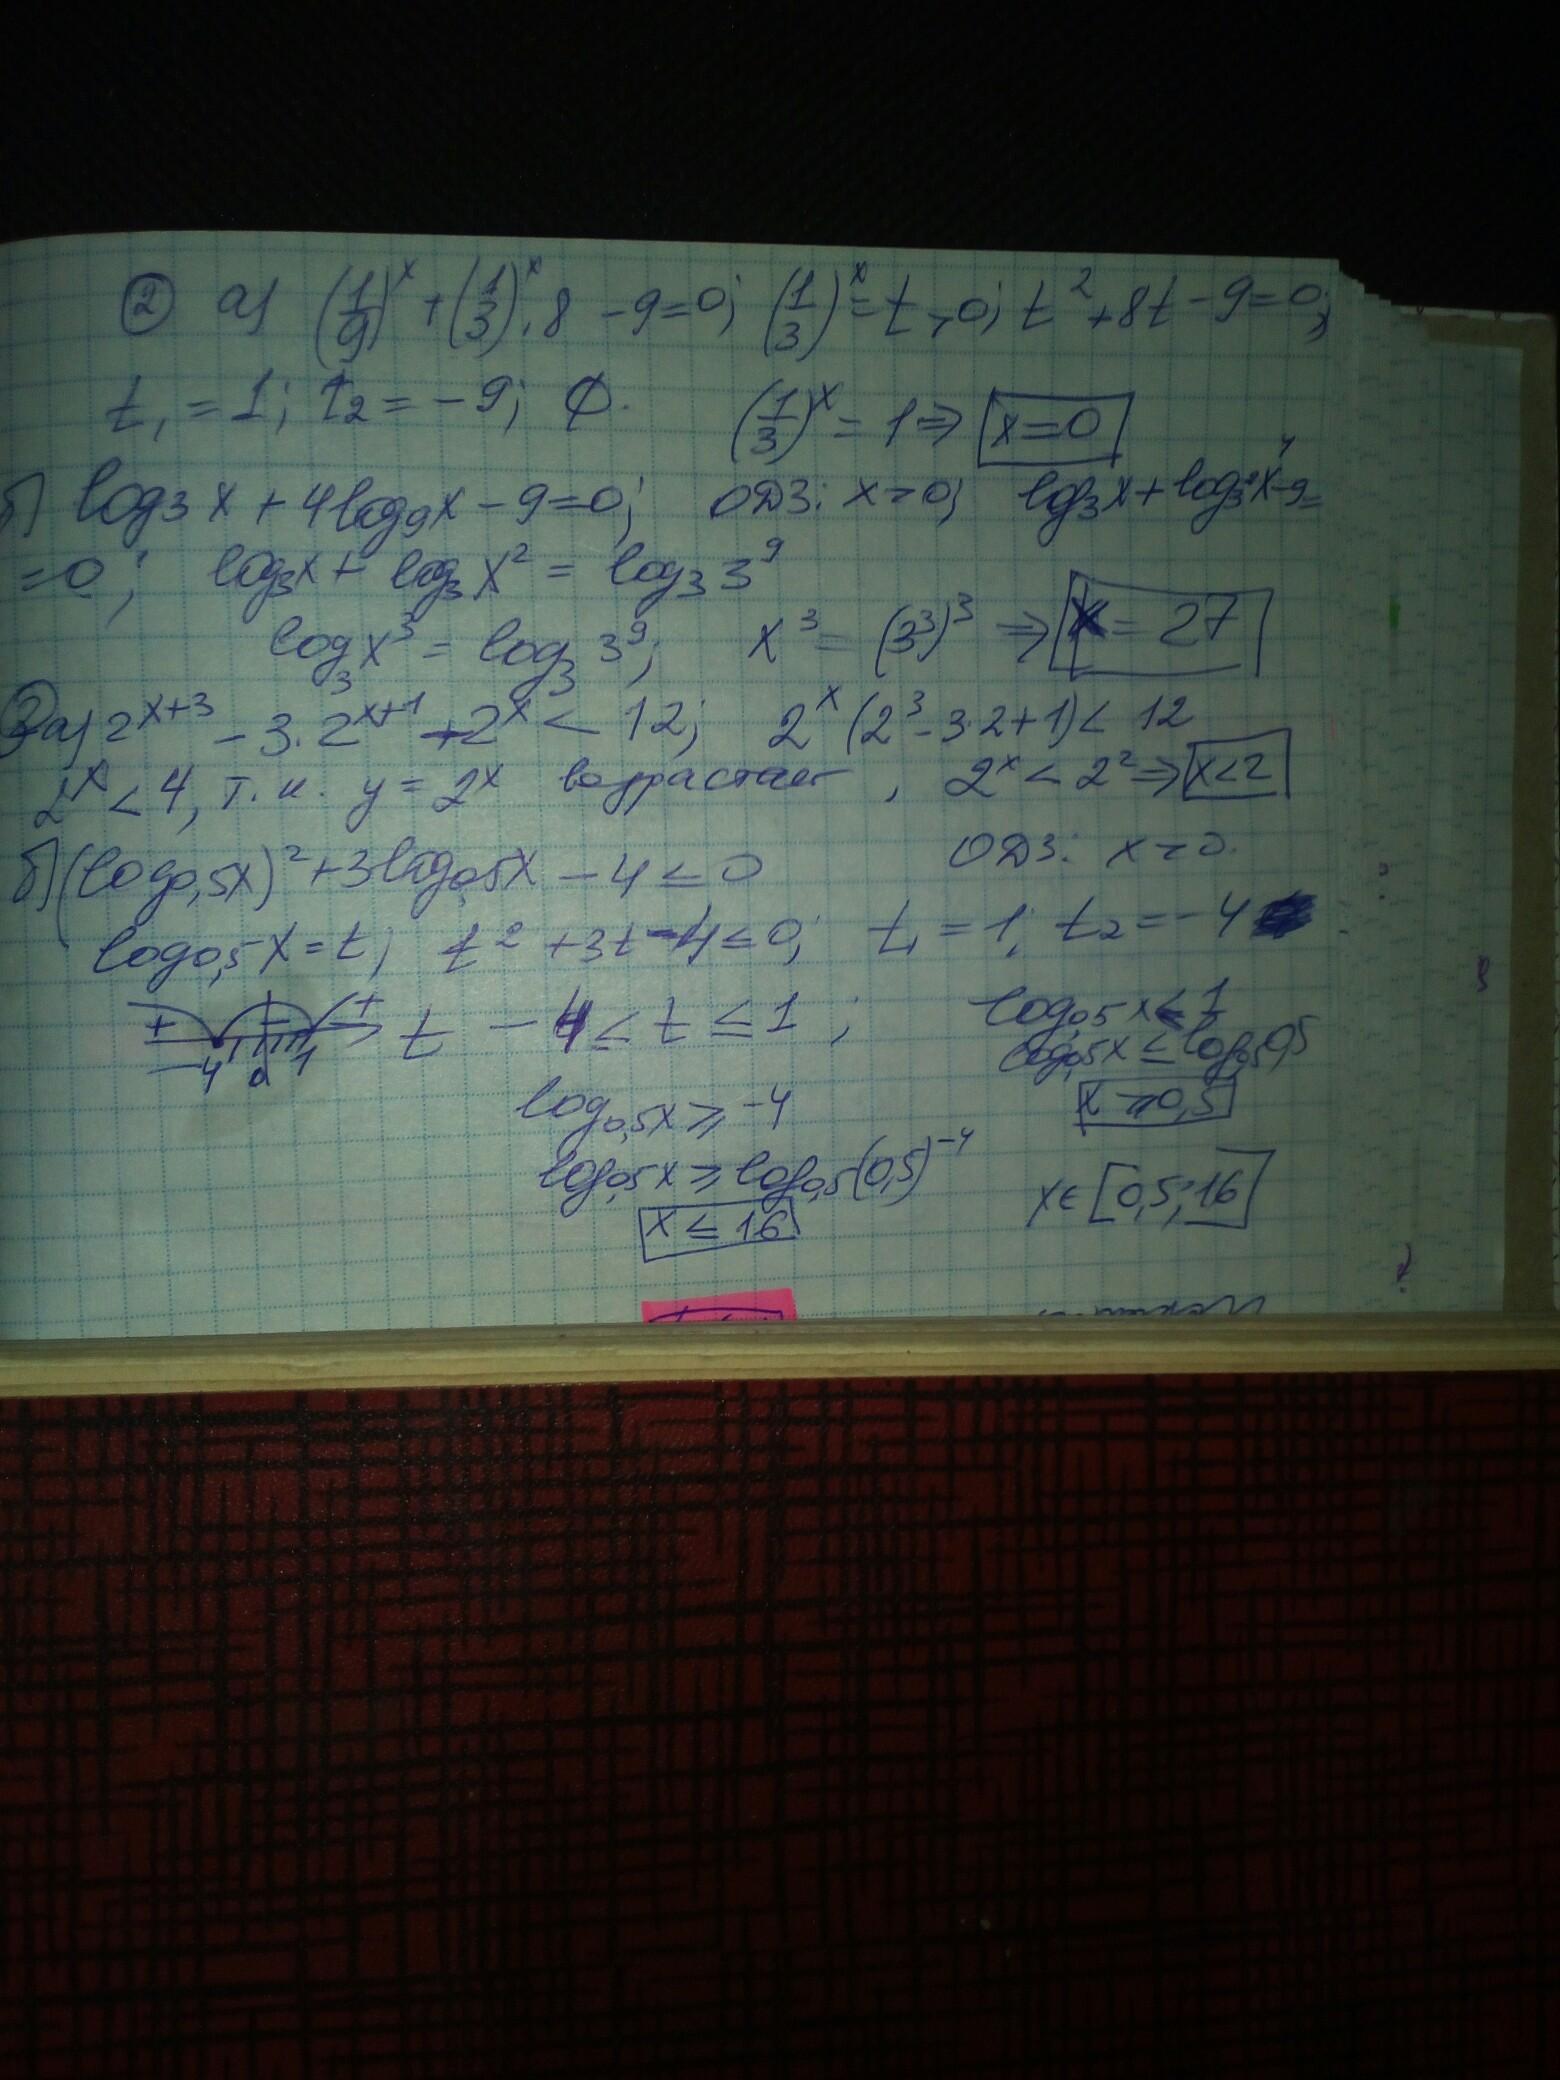 ② а) (1/9)^x + (1/3)^x · 8 - 9 = 0; (1/3)^x = t > 0; t² + 8t - 9 = 0;
t₁ = 1; t₂ = -9; ∅. (1/3)^x = 1 ⇒ x = 0
б) log₃x + 4log₉x - 9 = 0; ОДЗ: x > 0; log₃x + log₃²x⁴ - 9 =
= 0; log₃x + log₃x² = log₃3⁹
log₃x³ = log₃3⁹; x³ = (3³)³ ⇒ x = 27
а) 2^(x+3) - 3·2^(x+1) + 2^x < 12; 2^x (2³ - 3·2 + 1) < 12
2^x < 4, т.к. y = 2^x возрастает, 2^x < 2² ⇒ x < 2
б) (log₀,₅x)² + 3log₀,₅x - 4 ≤ 0 ОДЗ: x > 0.
log₀,₅x = t; t² + 3t - 4 ≤ 0; t₁ = 1; t₂ = -4
+ - + t -4 ≤ t ≤ 1; log₀,₅x ≤ 1
-4 0 1 log₀,₅x ≤ log₀,₅0,5
log₀,₅x ≥ -4 x ≥ 0,5
log₀,₅x ≥ log₀,₅(0,5)⁻⁴ x ∈ [0,5; 16]
x ≤ 16